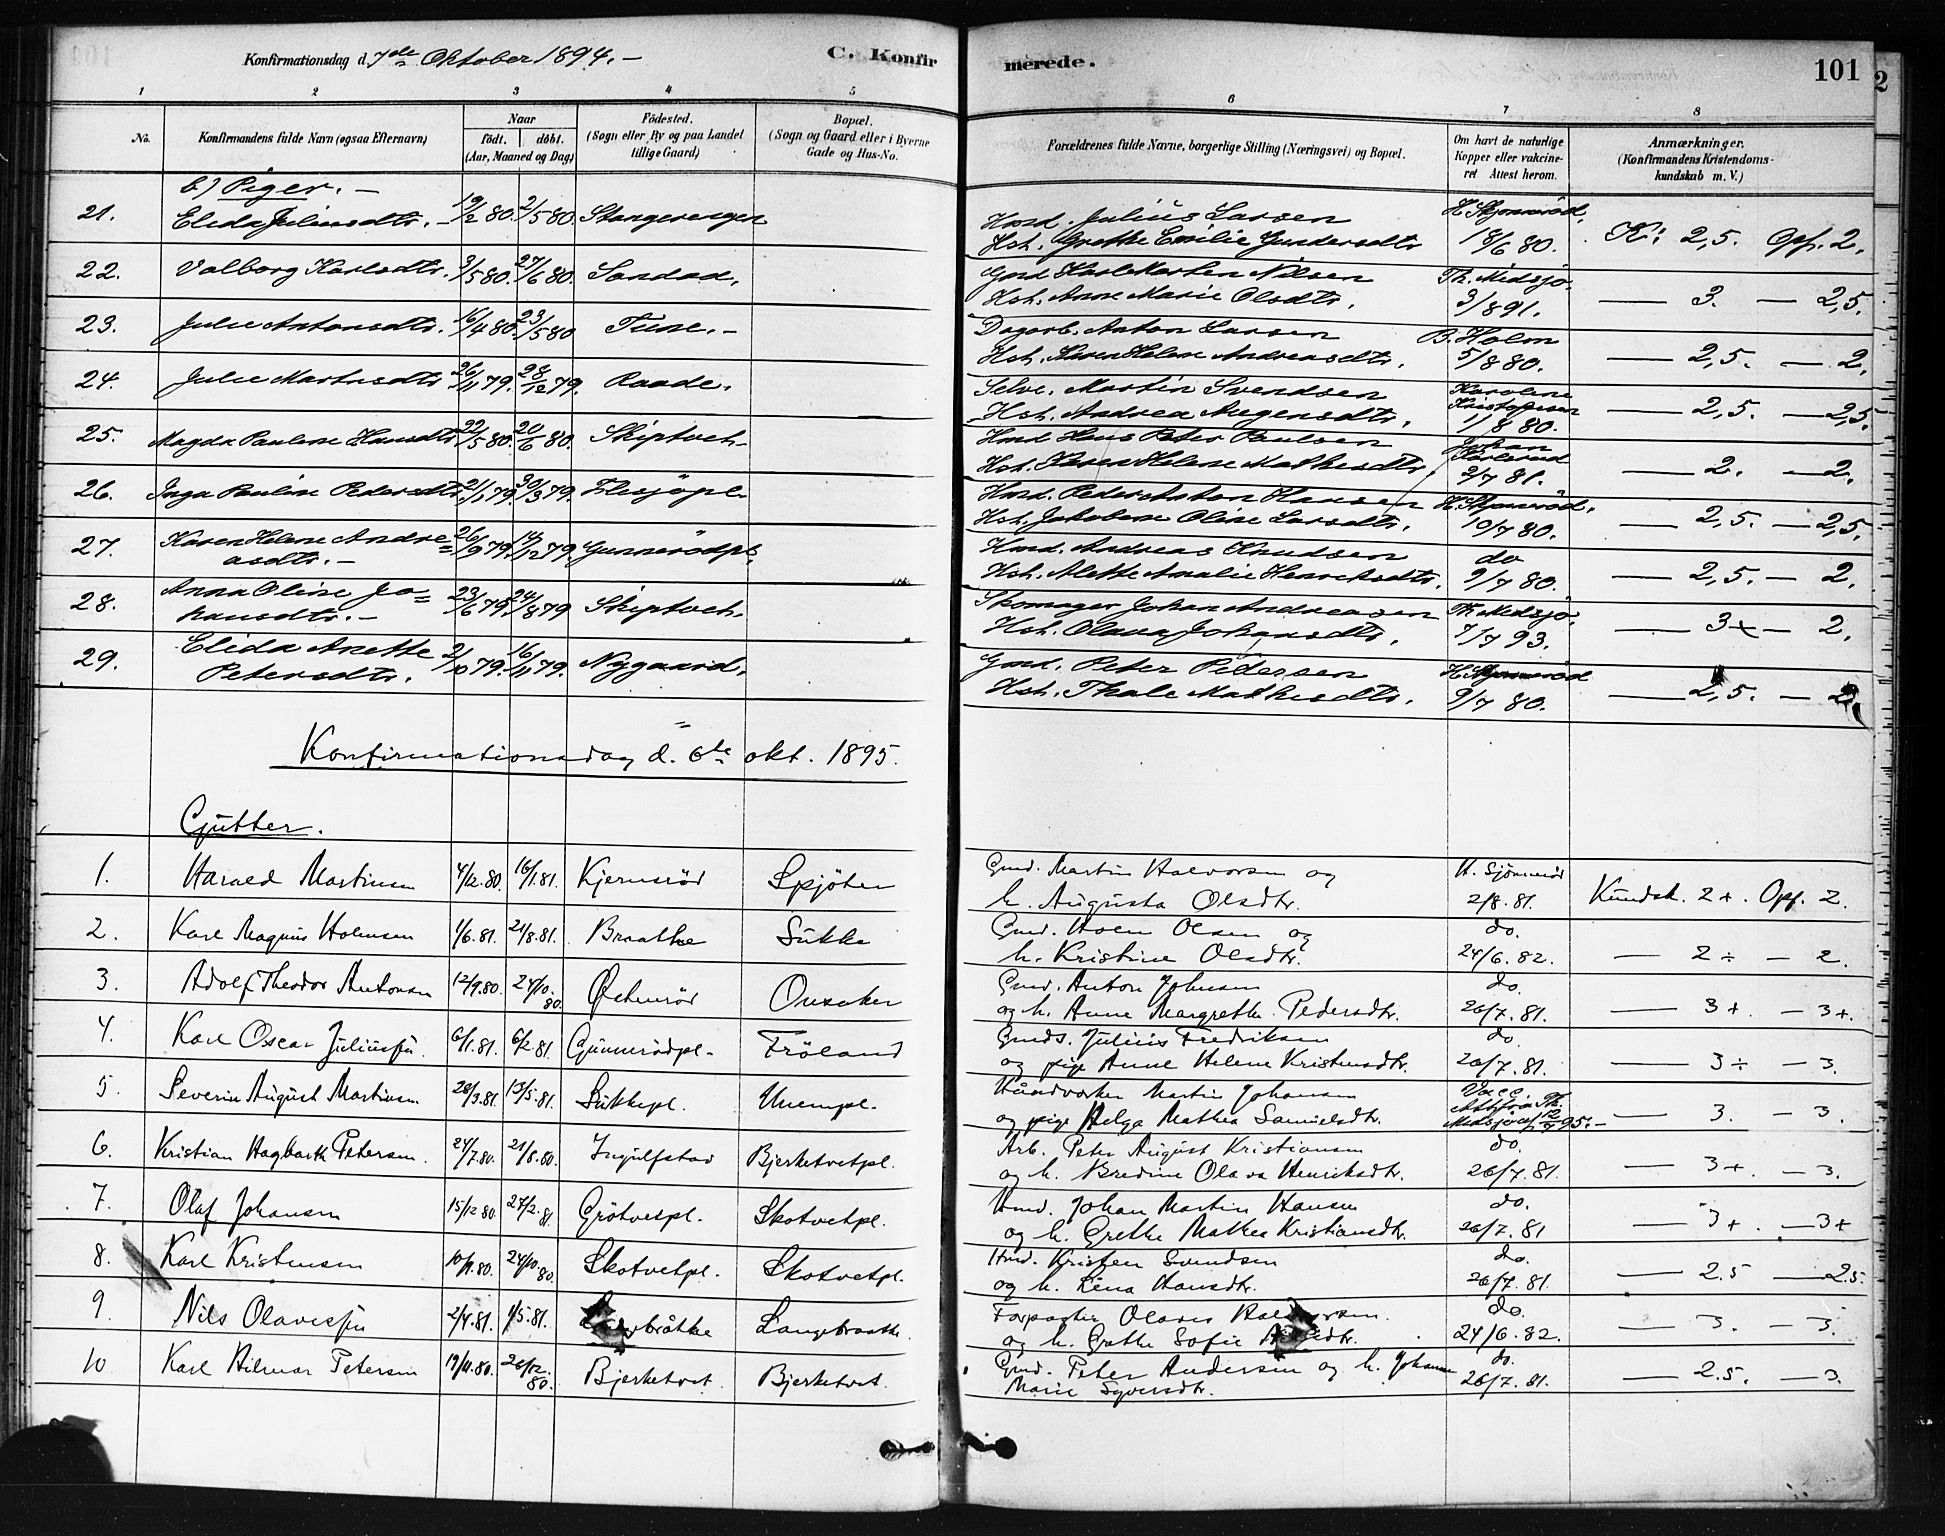 Konfirmationsdag d. 7de Oktober 1894. –
C. Konfirmerede.
101
1 2 3 4 5 6 7 8
No.
Konfirmandens fulde Navn (ogsaa Efternavn)
Naar
født. døbt.
(Aar, Maaned og Dag)
Fødested.
(Sogn eller By og paa Landet
tillige Gaard)
Bopæl.
(Sogn og Gaard eller i Byerne
Gade og Hus-No.
Forældrenes fulde Navne, borgerlige Stilling (Næringsvei) og Bopæl.
Om havt de naturlige
Kopper eller vakcine-
ret Attest herom.
Anmærkninger.
(Konfirmandens Kristendoms-
kundskab m. V.)
b) Piger. –
21. Elida Juliusdtr. 19/2 80. 2/5 80. Stangerengen
Hmd. Julius Larsen H. Skjønnerød,
Hst. Grethe Emilie Gundersdtr 18/6 80. K: 2,5. Opf. 2.
22. Valborg Karlsdtr. 3/5 80. 27/6 80. Sandad,
Gmd Karl Morten Nilsen Th. Midsjø.
Hst. Anne Marie Olsdtr. 3/8 91. — 3. — 2,5.
23. Julie Antonsdtr. 16/4 80. 23/5 80 Tune. –
Dagarb. Anton Larsen B. Holm
Hst. Karen Helene Andreasdtr. 5/8 80. — 2,5. — 2.
24. Julie Martinsdtr 26/11 79. 28/12 79. Raade.
Selve. Martin Svendsen Karoline Kristofersen
Hst. Andrea Mugensdtr. 1/8 80. — 2,5. — 2,5.
25. Magda Pauline Hansdtr 22/5 80. 20/6 80. Skiptvet.
Hmd Hans Peter Paulsen Johan Karlsrud
Hst. Karen Helene Mathisdtr 2/7 81. — 2. — 2.
26. Inga Pauline Pedersdtr. 21/1 79. 30/3 79. Flesjøpl.
Hmd. Peder Anton Hansen H. Skjønnerød.
Hst. Jakobine Oline Larsdtr. 10/7 80. — 2,5. — 2,5.
27. Karen Helene Andre=
asdtr. – 26/9 79. 14/12 79. Gunnerødpl.
Hmd. Andreas Knudsen do
Hst. Alette Amalie Henriksdtr. 9/7 80. — 2,5. — 2.
28. Anna Oline Jo=
hansdtr. – 23/6 79. 24/8 79 Skiptvet.
Skomager Johan Andreasen Th. Midsjø.
Hst. Olava Johansdtr. 7/7 93. — 3+ — 2.
29. Elida Anette
Petersdtr. 2/10 79. 16/11 79. Nygaard.
Gmd. Peter Pedersen H. Skjønnerød
Hst. Thale Mathisdtr. 9/7 80. — 2,5. — 2.
Konfirmationsdag d. 6te okt. 1895.
Gutter.
1. Harald Martinsen 4/12.80. 16/1.81. Kjernsrød Spjøten
Gmd. Martin Halvorsen og H. Sjønnerød
h. Augusta Olsdtr. 2/8.81. Kundsk. 2+. Opf. 2.
2. Karl Magnus Holmsen 1/6.81. 21/8.81. Braathe Sukke
Gmd. Holm Olsen og do.
h. Kristine Olsdtr. 24/6.82. — 2 ÷ — 2.
3. Adolf Theodor Antonsen 12/9.80. 24/10.80. Østenrød Onsaker
Gmd. Anton Johnsen do.
og h. Anne Margrethe Pedersdtr. 26/7.81. — 3+. — 3+.
4. Karl Oscar Juliussøn 6/1.81. 6/2.81. Gunnerødpl. Frøland
Gmds. Julius Fredriksen do.
og pige Anne Helene Kristensdtr. 26/7.81. — 3 ÷ — 3.
5. Severin August Martinsen 28/3.81. 15/5.81. Sukkepl. Unempl.
Håndværker Martin Johansen Vacc. Att. fra Th.
og pige Helga Mathea Samuelsdtr. Midsjø af 12/9 95. – — 3. — 3.
6. Kristian Hagbarth Petersen. 24/7.80. 21/8.80. Ingulfstad Bjerketvetpl.
Arb. Peter August Kristiansen do.
og h. Bredine Olava Henriksdtr. 26/7.81. — 3+. — 3.
7. Olaf Johansen 15/12 80. 27/2.81. Grøtvetpl. Skotvetpl.
Hmd. Johan Martin Hansen do.
og h. Grethe Mathea Kristiansdtr. 26/7.81 — 3+. — 3+
8. Karl Kristensen 10/9.80. 24/10.80. Skotvetpl. Skotvetpl.
Hmd. Kristen Svendsen do.
og h. Lena Hansdtr. 26/7.81. — 2.5 — 2.5.
9. Nils Olavessøn 2/4.81. 1/5.81. Langbråthe Langbraathe
Forpagter Olaves Halvorsen. do.
og h. Grethe Sofie 24/6.82. — 3. — 3.
10 Karl Hilmar Petersen 19/11.80. 26/12.80. Bjerketvet Bjerketvet.
Gmd. Peter Andersen og h. Johanne do.
Marie Syversdtr. 26/7.81. — 2.5. — 3.